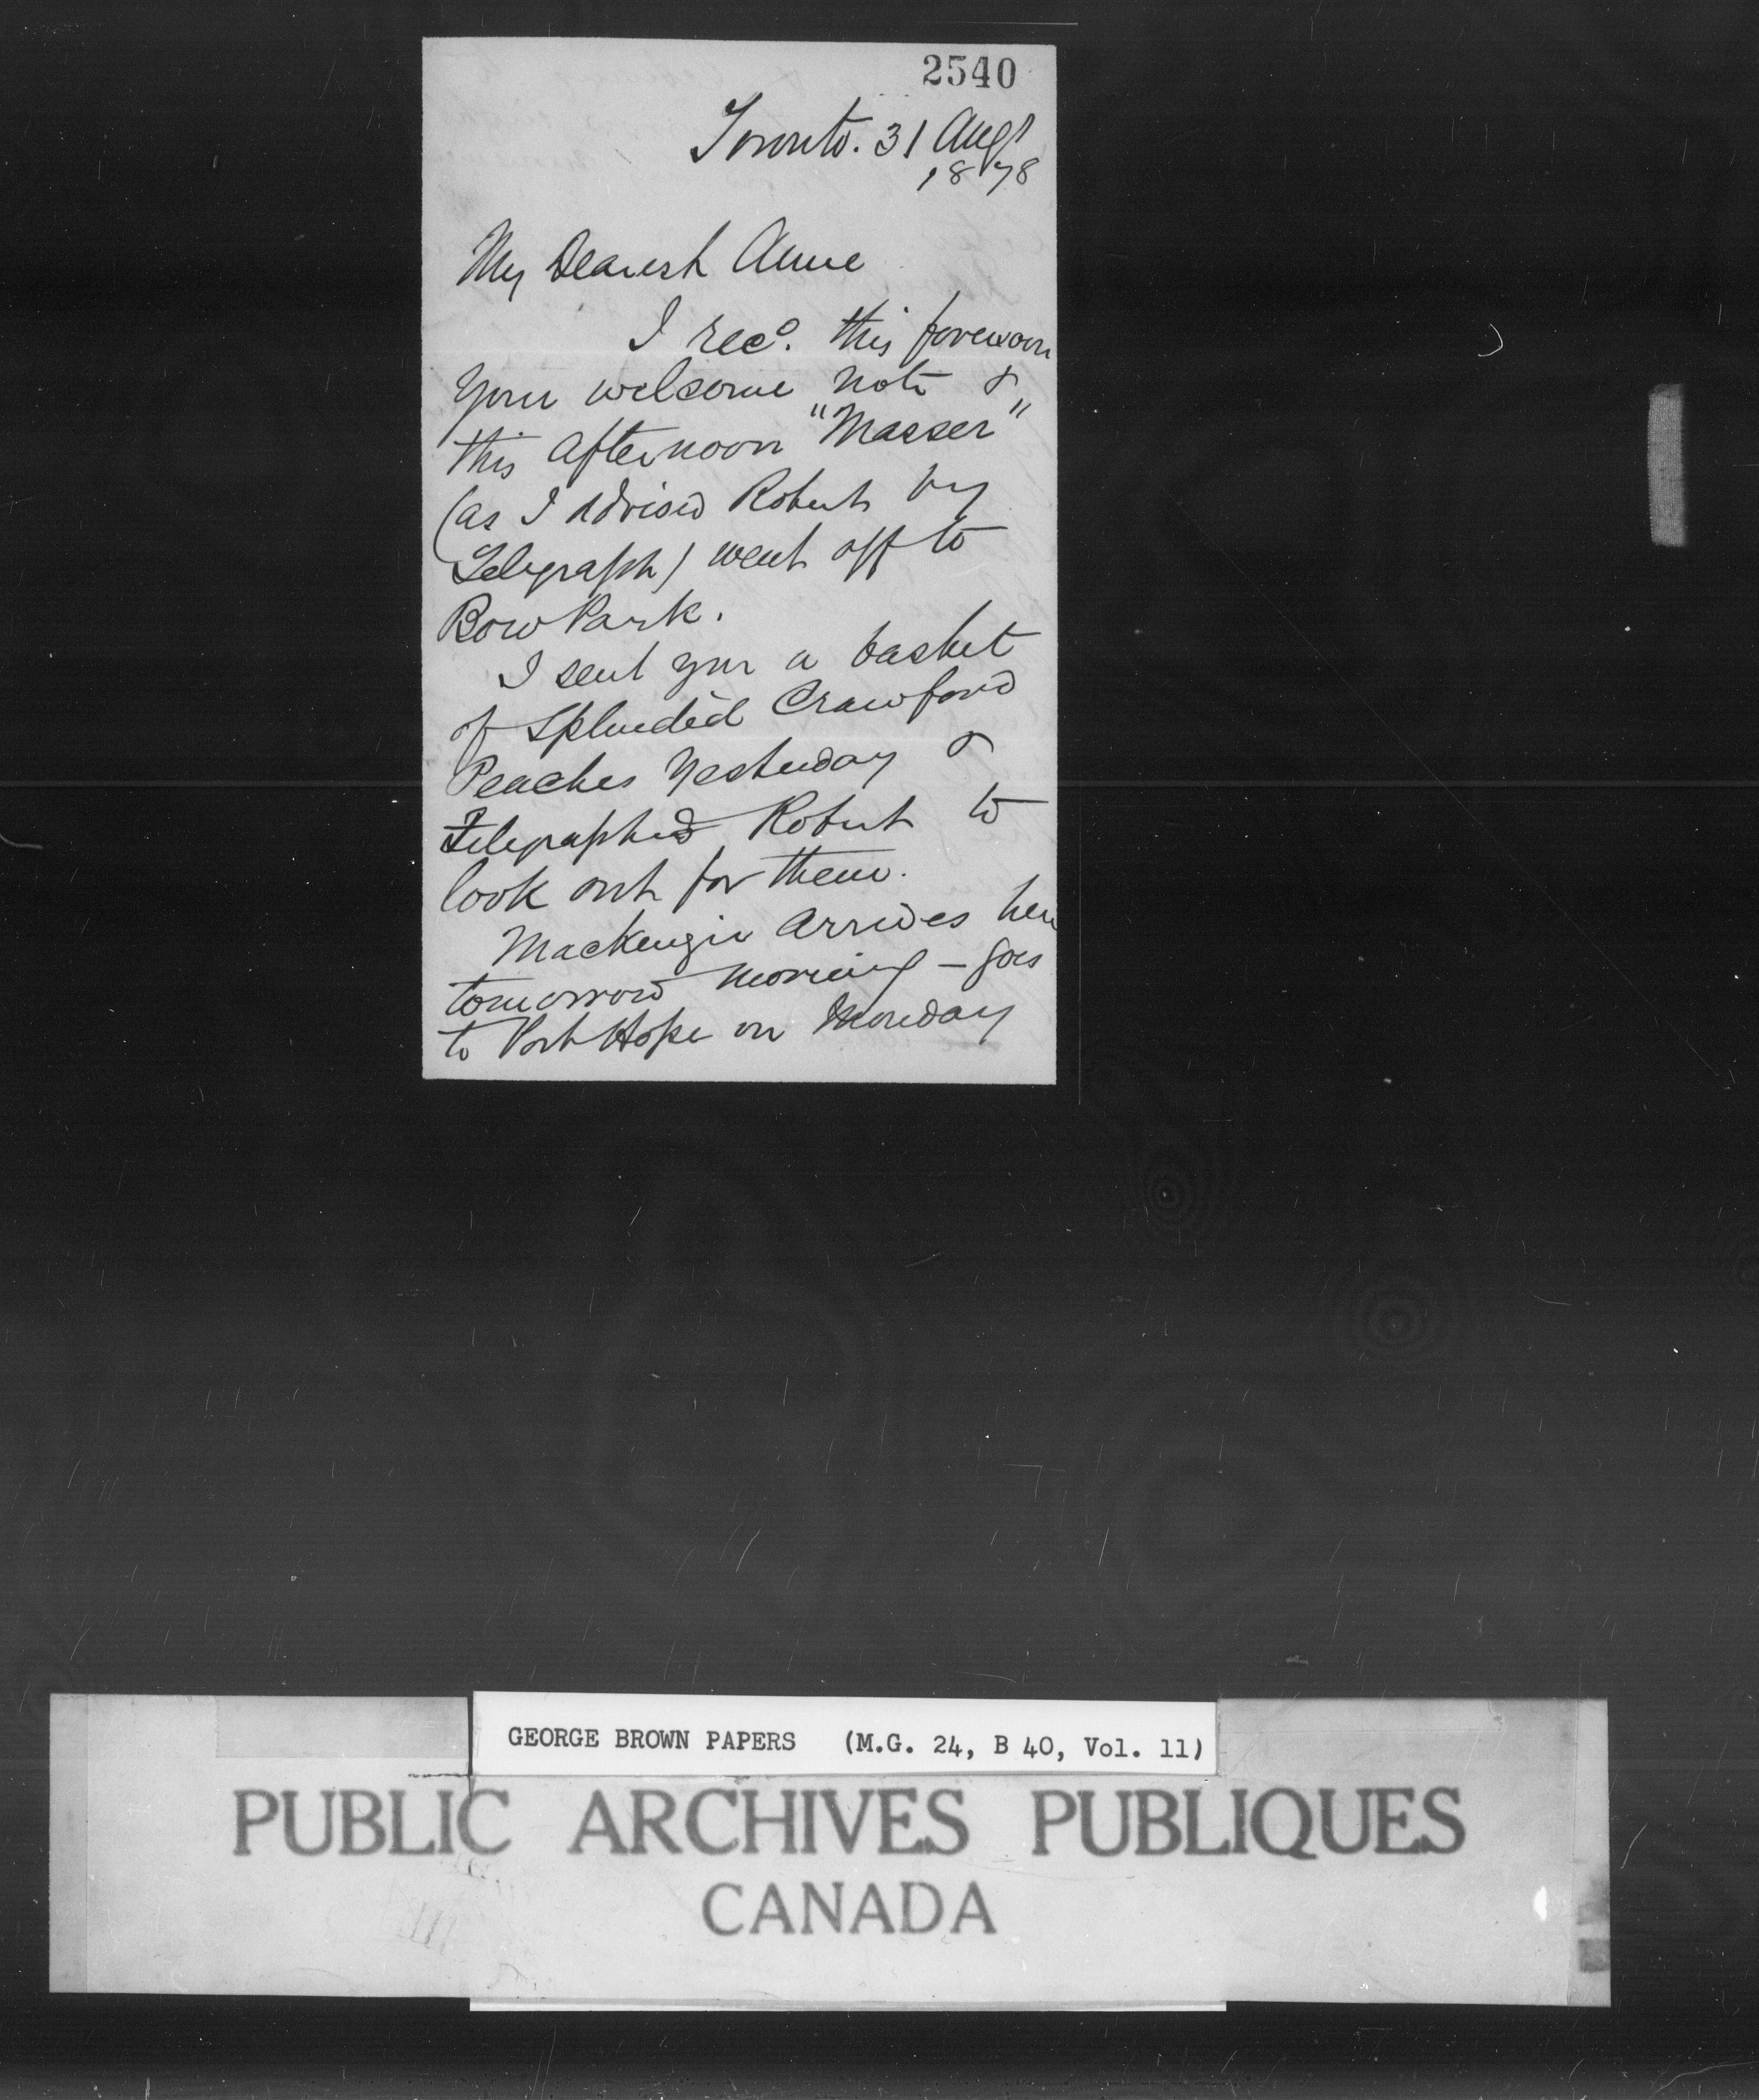 2540
Toronto. 31 Augt
1878
My Dearest Anne
I recd. this forenoon
your welcome note &
this afternoon "Masser"
(as I advised Robert by
Telegraph) went off to
Bow Park.
I sent you a basket
of splendid Crawford
Peaches yesterday &
Telegraphed Robert to
look out for them.
Mackenzie arrives here
tomorrow morning - goes
to Port Hope on Monday
GEORGE BROWN PAPERS (M.G. 24, B 40, Vol. 11)
PUBLIC ARCHIVES PUBLIQUES
CANADA